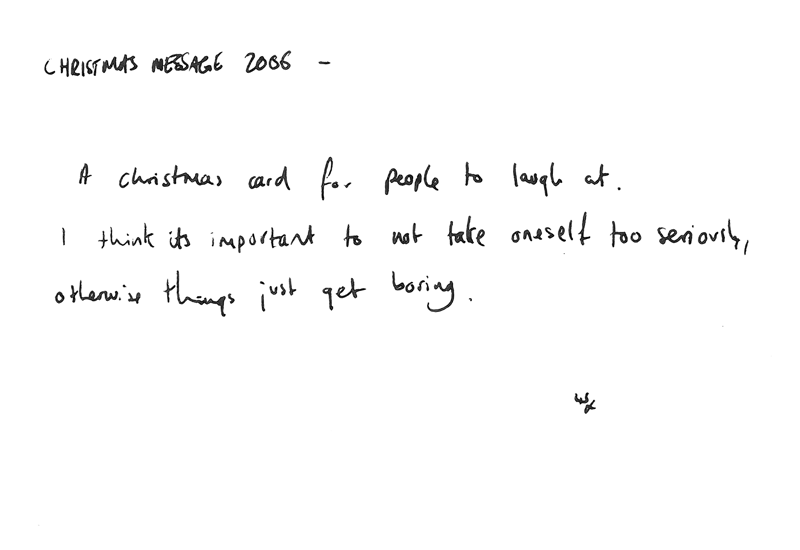 CHRISTMAS MESSAGE 2006 -
A christmas card for people to laugh at.
I think its important to not take oneself too seriously,
otherwise things just get boring.